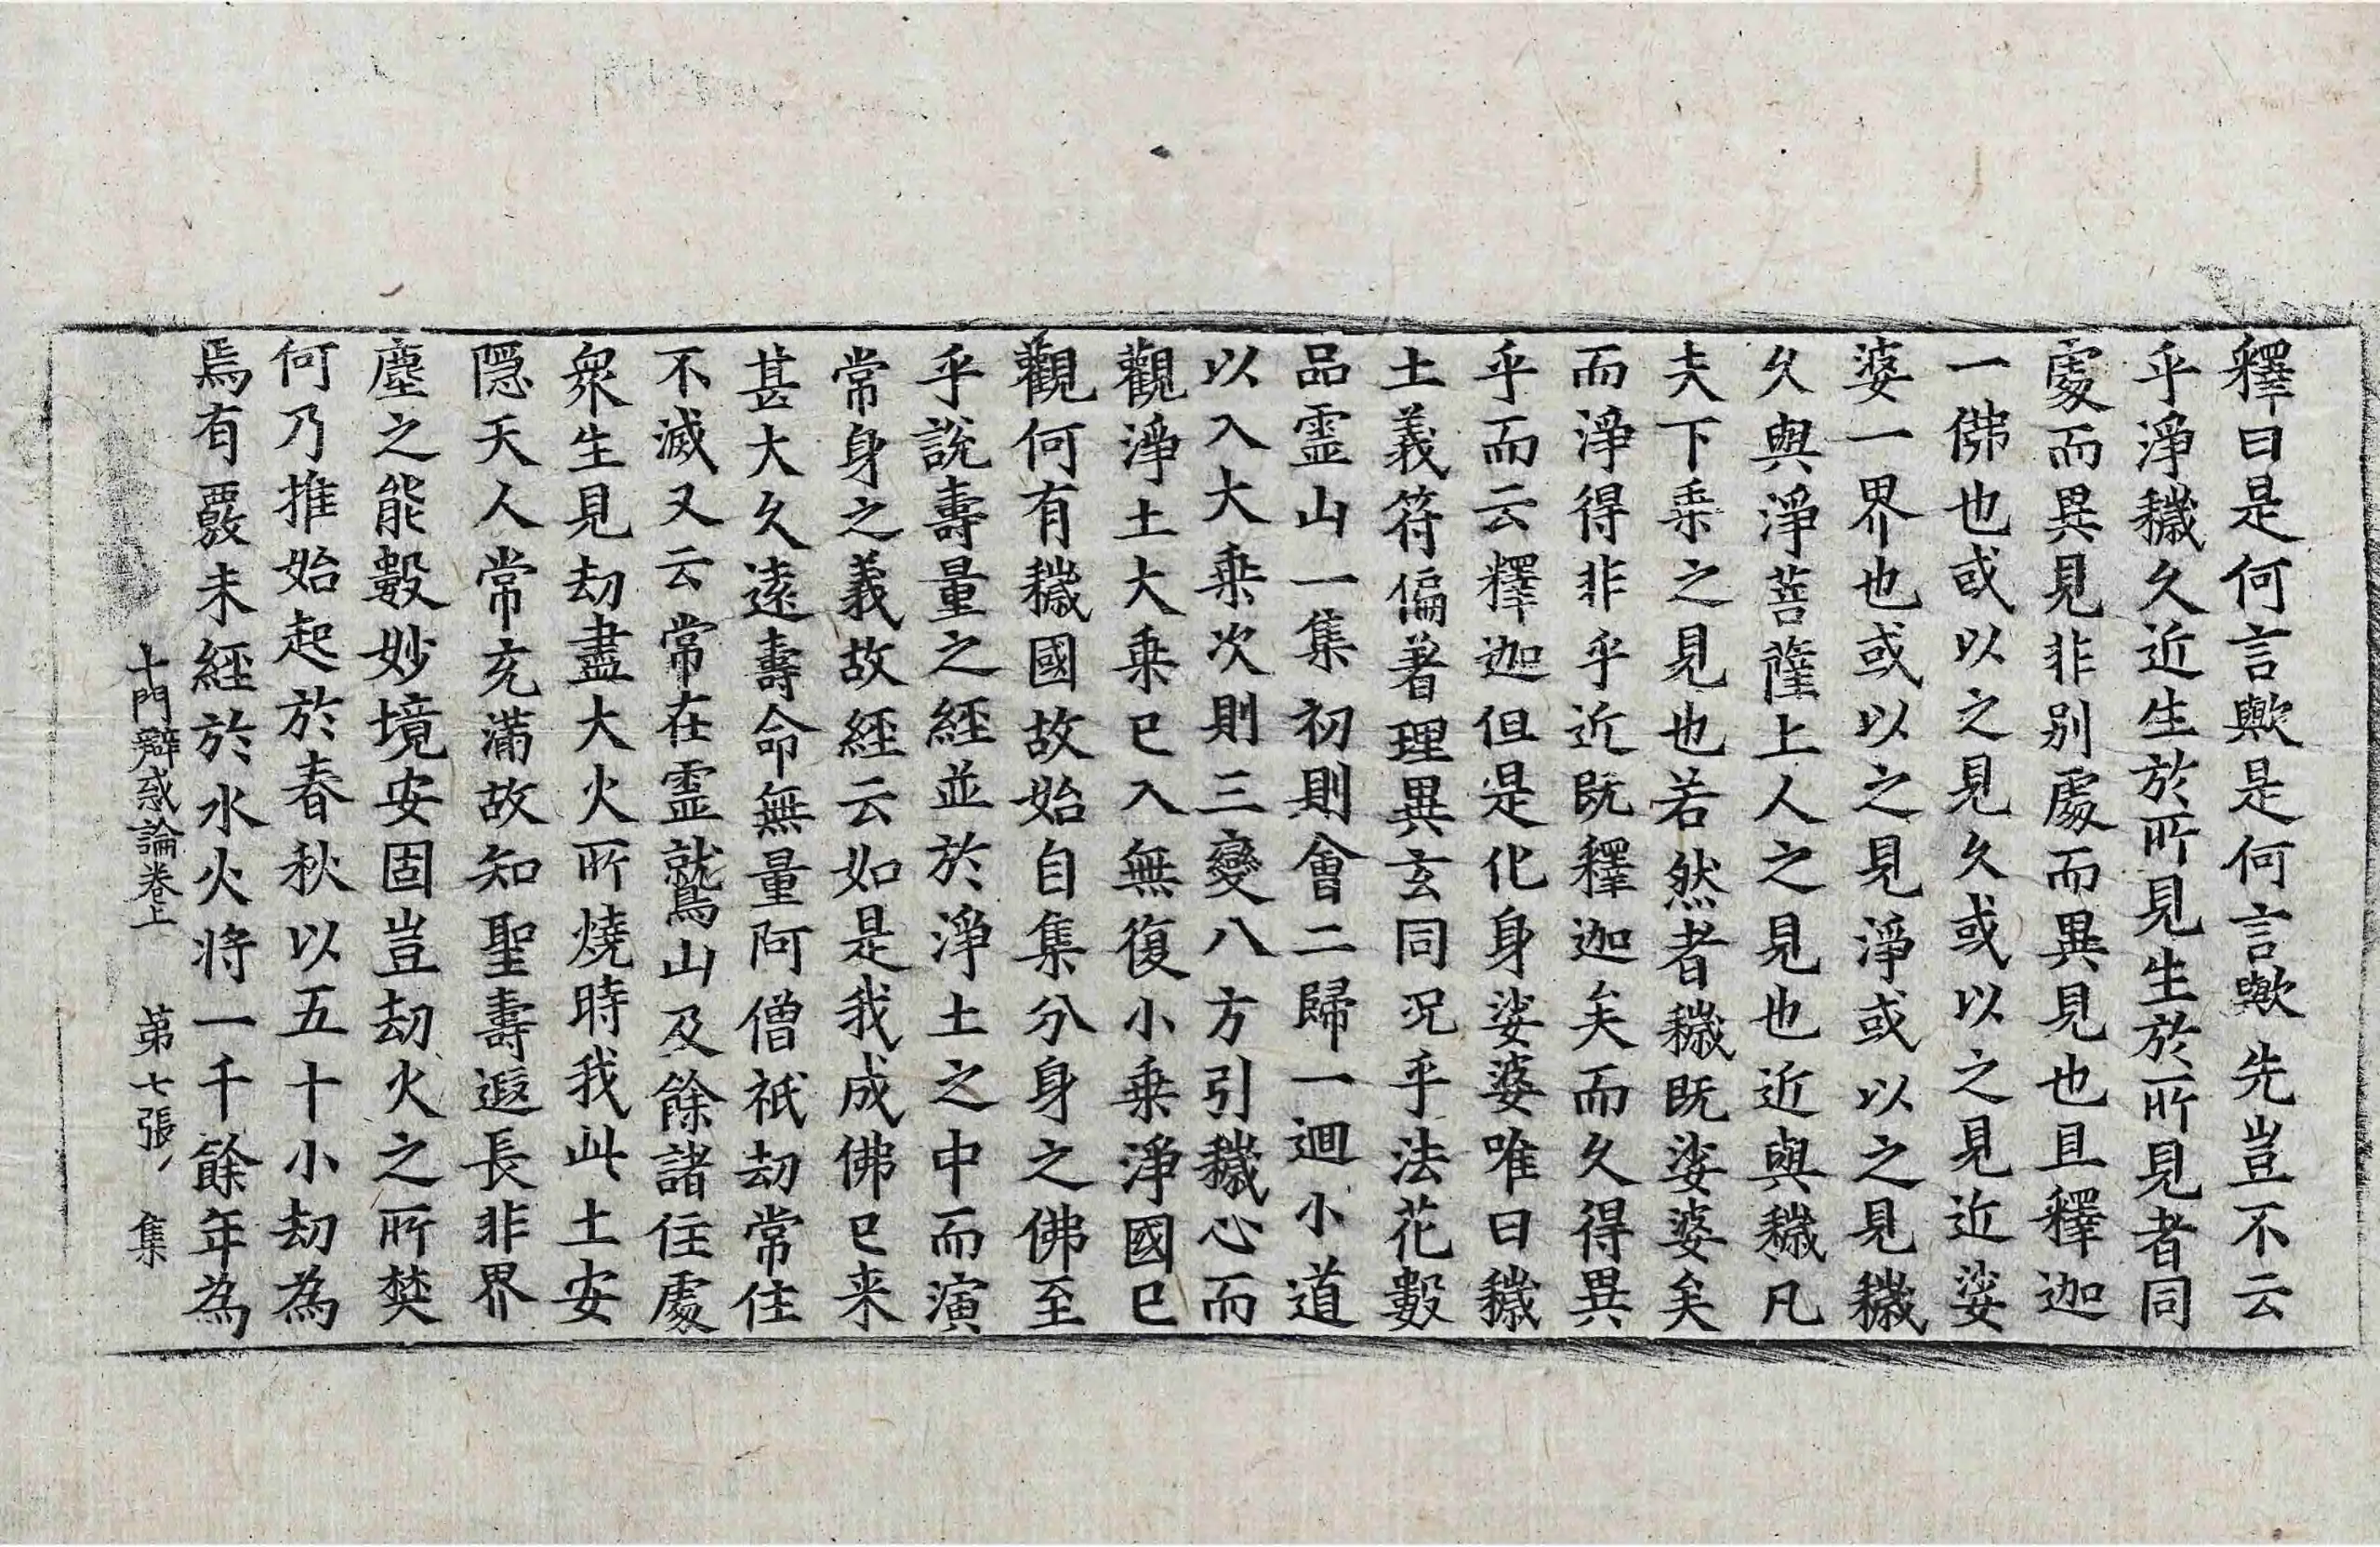 釋曰是何言歟是何言歟先豈不云
乎淨穢久近生於所見生於所見者同
處而異見非別處而異見也且釋迦
一佛也或以之見久或以之見近娑
婆一界也或以之見淨或以之見穢
久與淨菩薩上人之見也近與穢凡
夫下乗之見也若然者穢既娑婆矣
而淨得非乎近既釋迦矣而久得異
乎而云釋迦但是化身娑婆唯曰穢
土義符偏著理異玄同況乎法花數
品霊山一集初則會二歸一迴小道
以入大乗次則三變八方引穢心而
觀淨土大乗已入無復小乗淨國已
觀何有穢國故始自集分身之佛至
乎說壽量之經並於淨土之中而演
常身之義故經云如是我成佛已来
甚大久遠壽命無量阿僧祇劫常住
不滅又云常在霊鷲山及餘諸住處
衆生見劫盡大火所燒時我此土安
隠天人常充滿故知聖壽遐長非界
塵之能數妙境安固豈劫火之所焚
何乃推始起於春秋以五十小劫為
焉有覈未經於水火将一千餘年為
十門辯惑論卷上 第七張 集